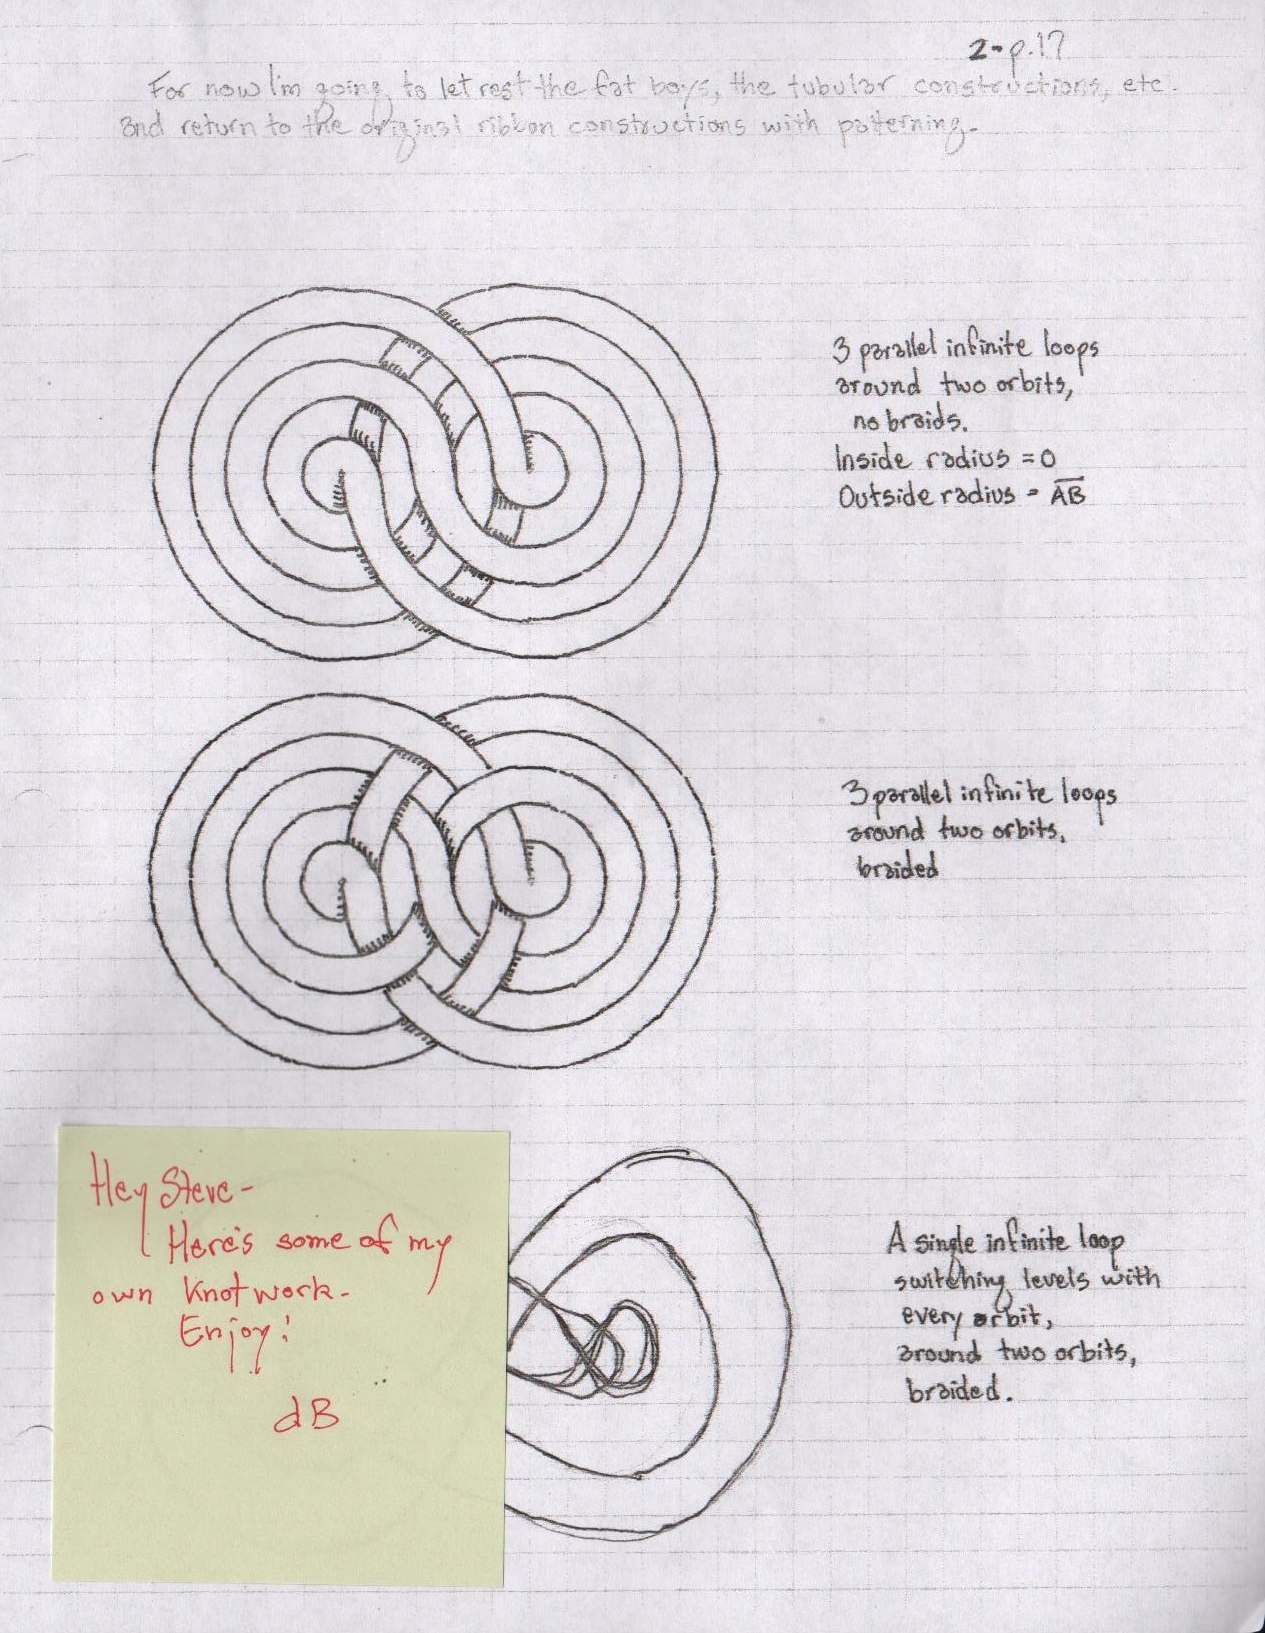 2-p.17
For now I'm going to let rest the fat boys, the tubular constructions, etc.
and return to the original ribbon constructions with patterning.
3 parallel infinite loops
around two orbits,
no braids.
Inside radius = 0
Outside radius = A̅B̅
3 parallel infinite loops
around two orbits,
braided
Hey Steve-
Here's some of my
own Knotwork-
Enjoy!
dB
A single infinite loop
switching levels with
every orbit,
around two orbits,
braided.